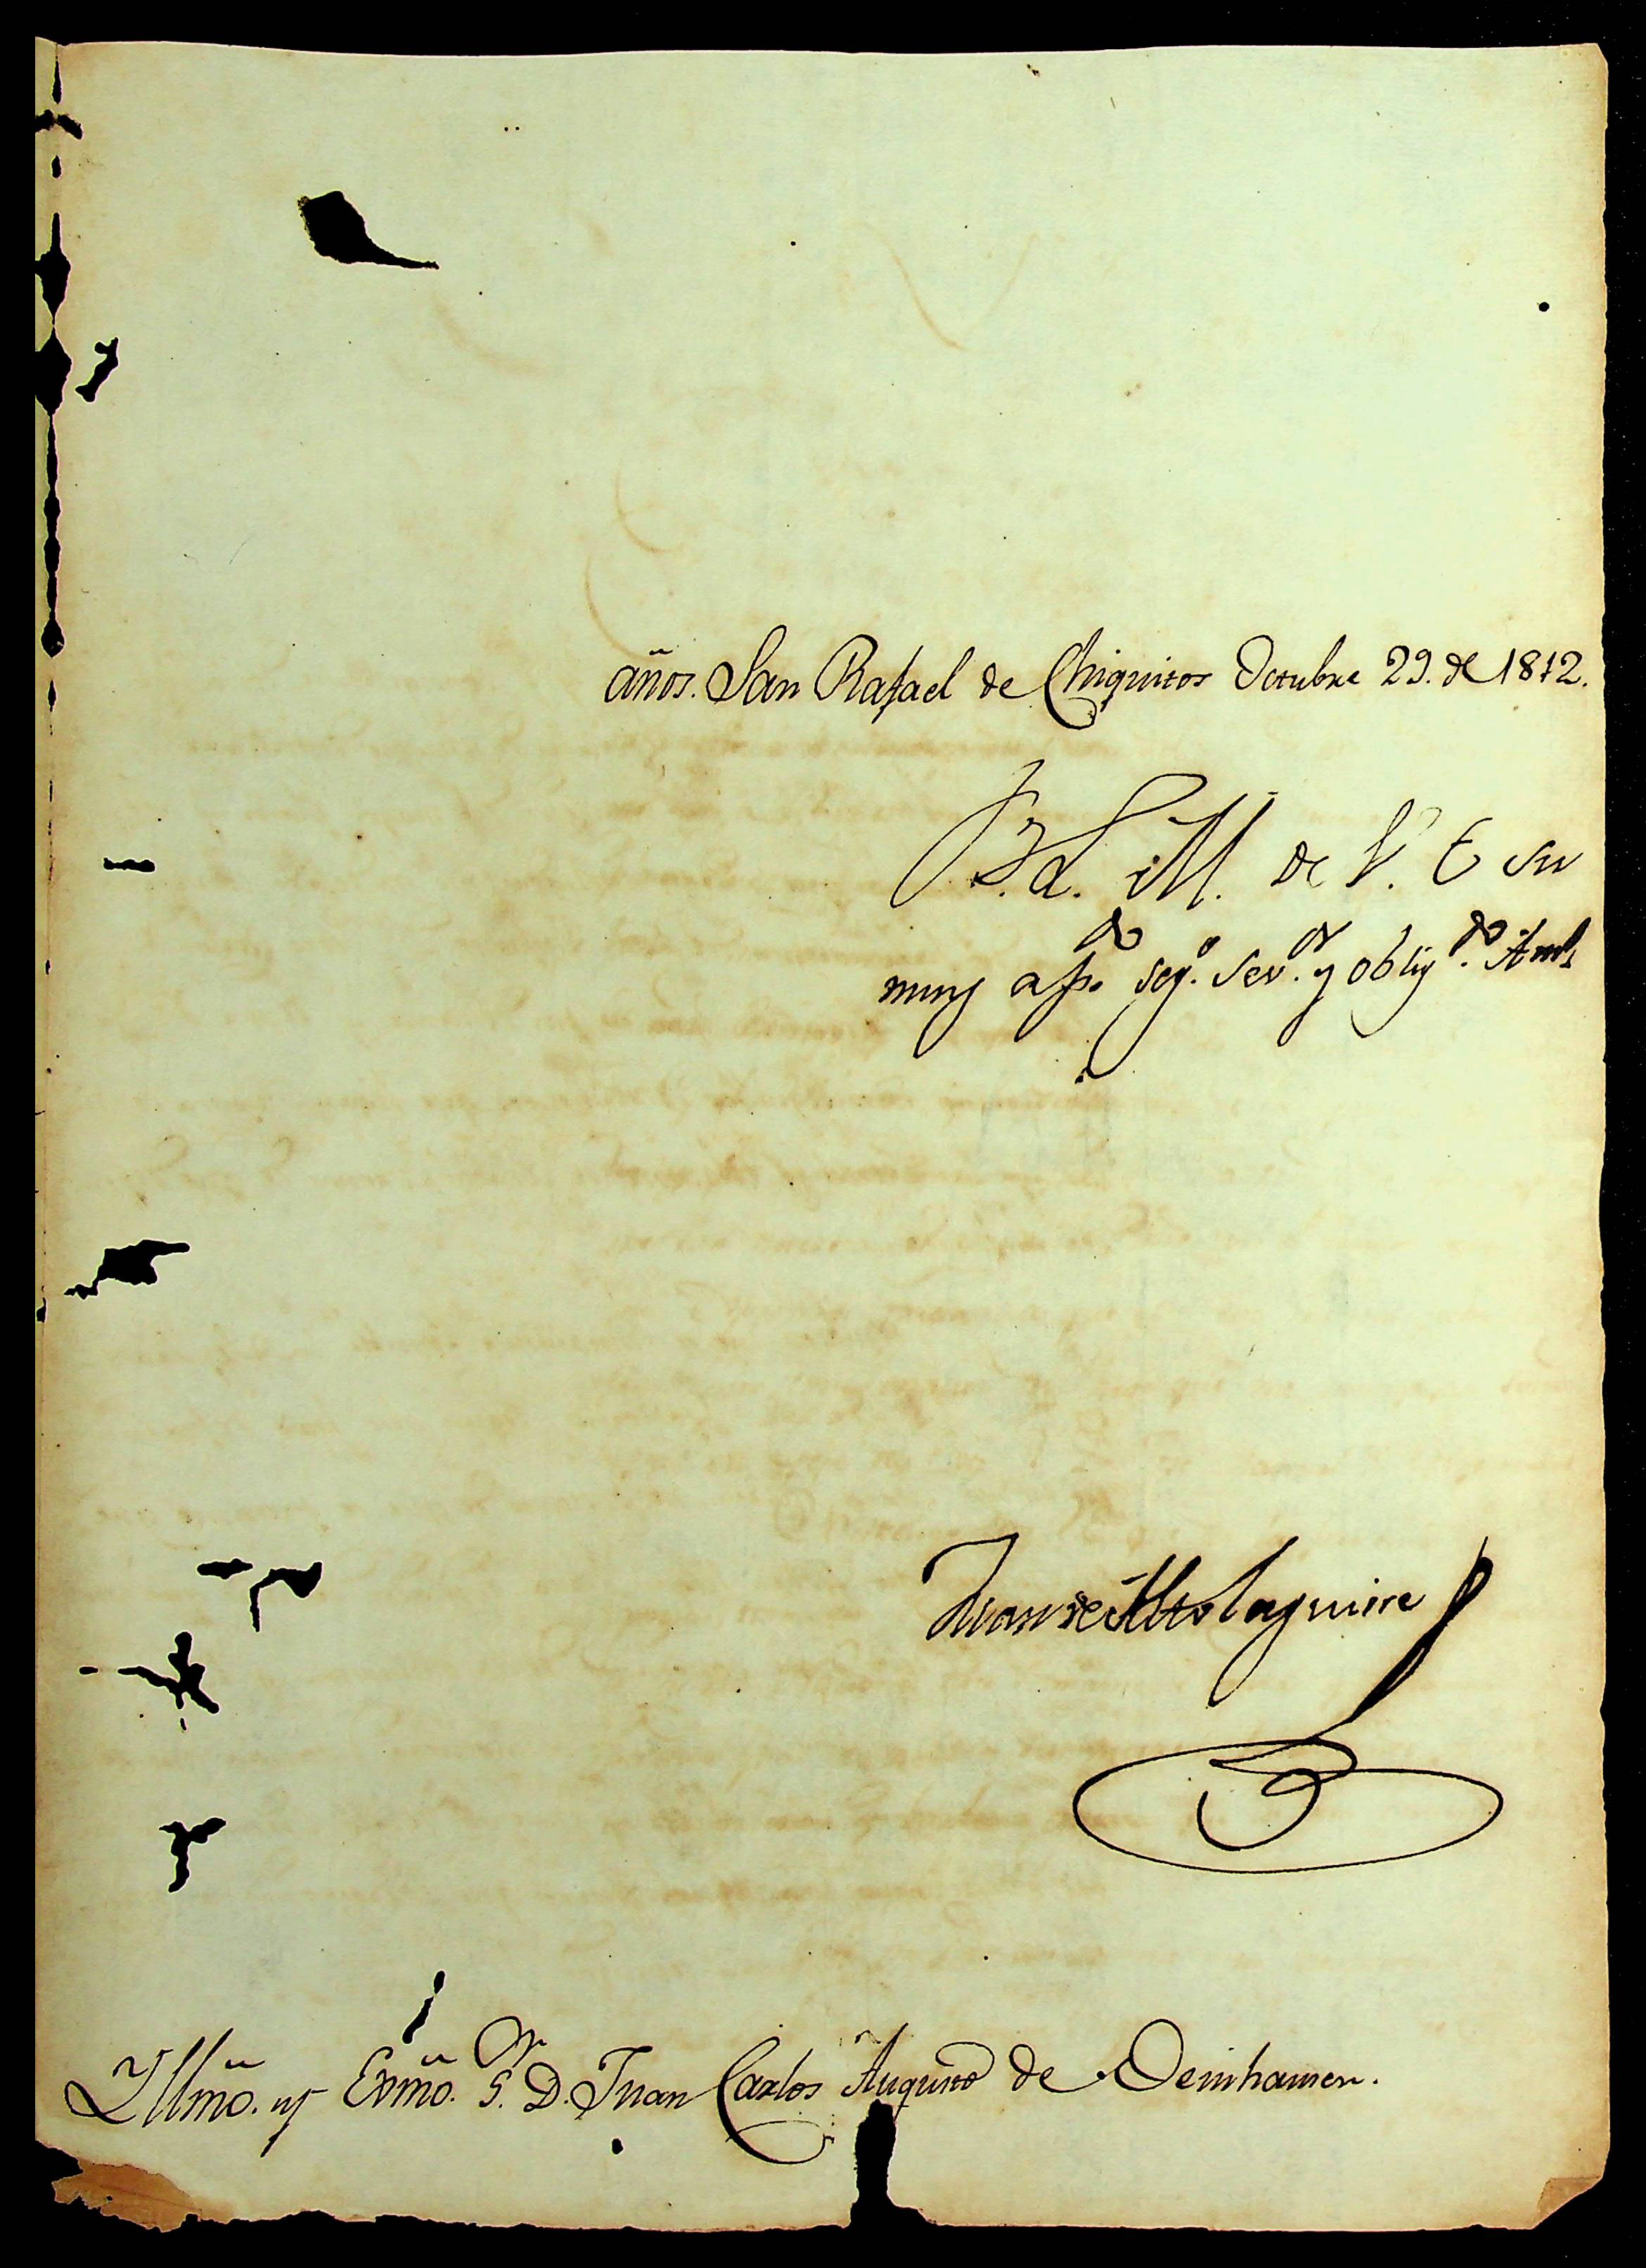 años. San Rafael de Chiquitos Octubre 29. de 1812.
B. L. M. de V. E su
muy af.do seg.o ser.or y oblig.do Am.o
Juan de Altolaguirre
Yllmõ. y Exmõ. S.or D. Juan Carlos Augusto de Oeinhausen.